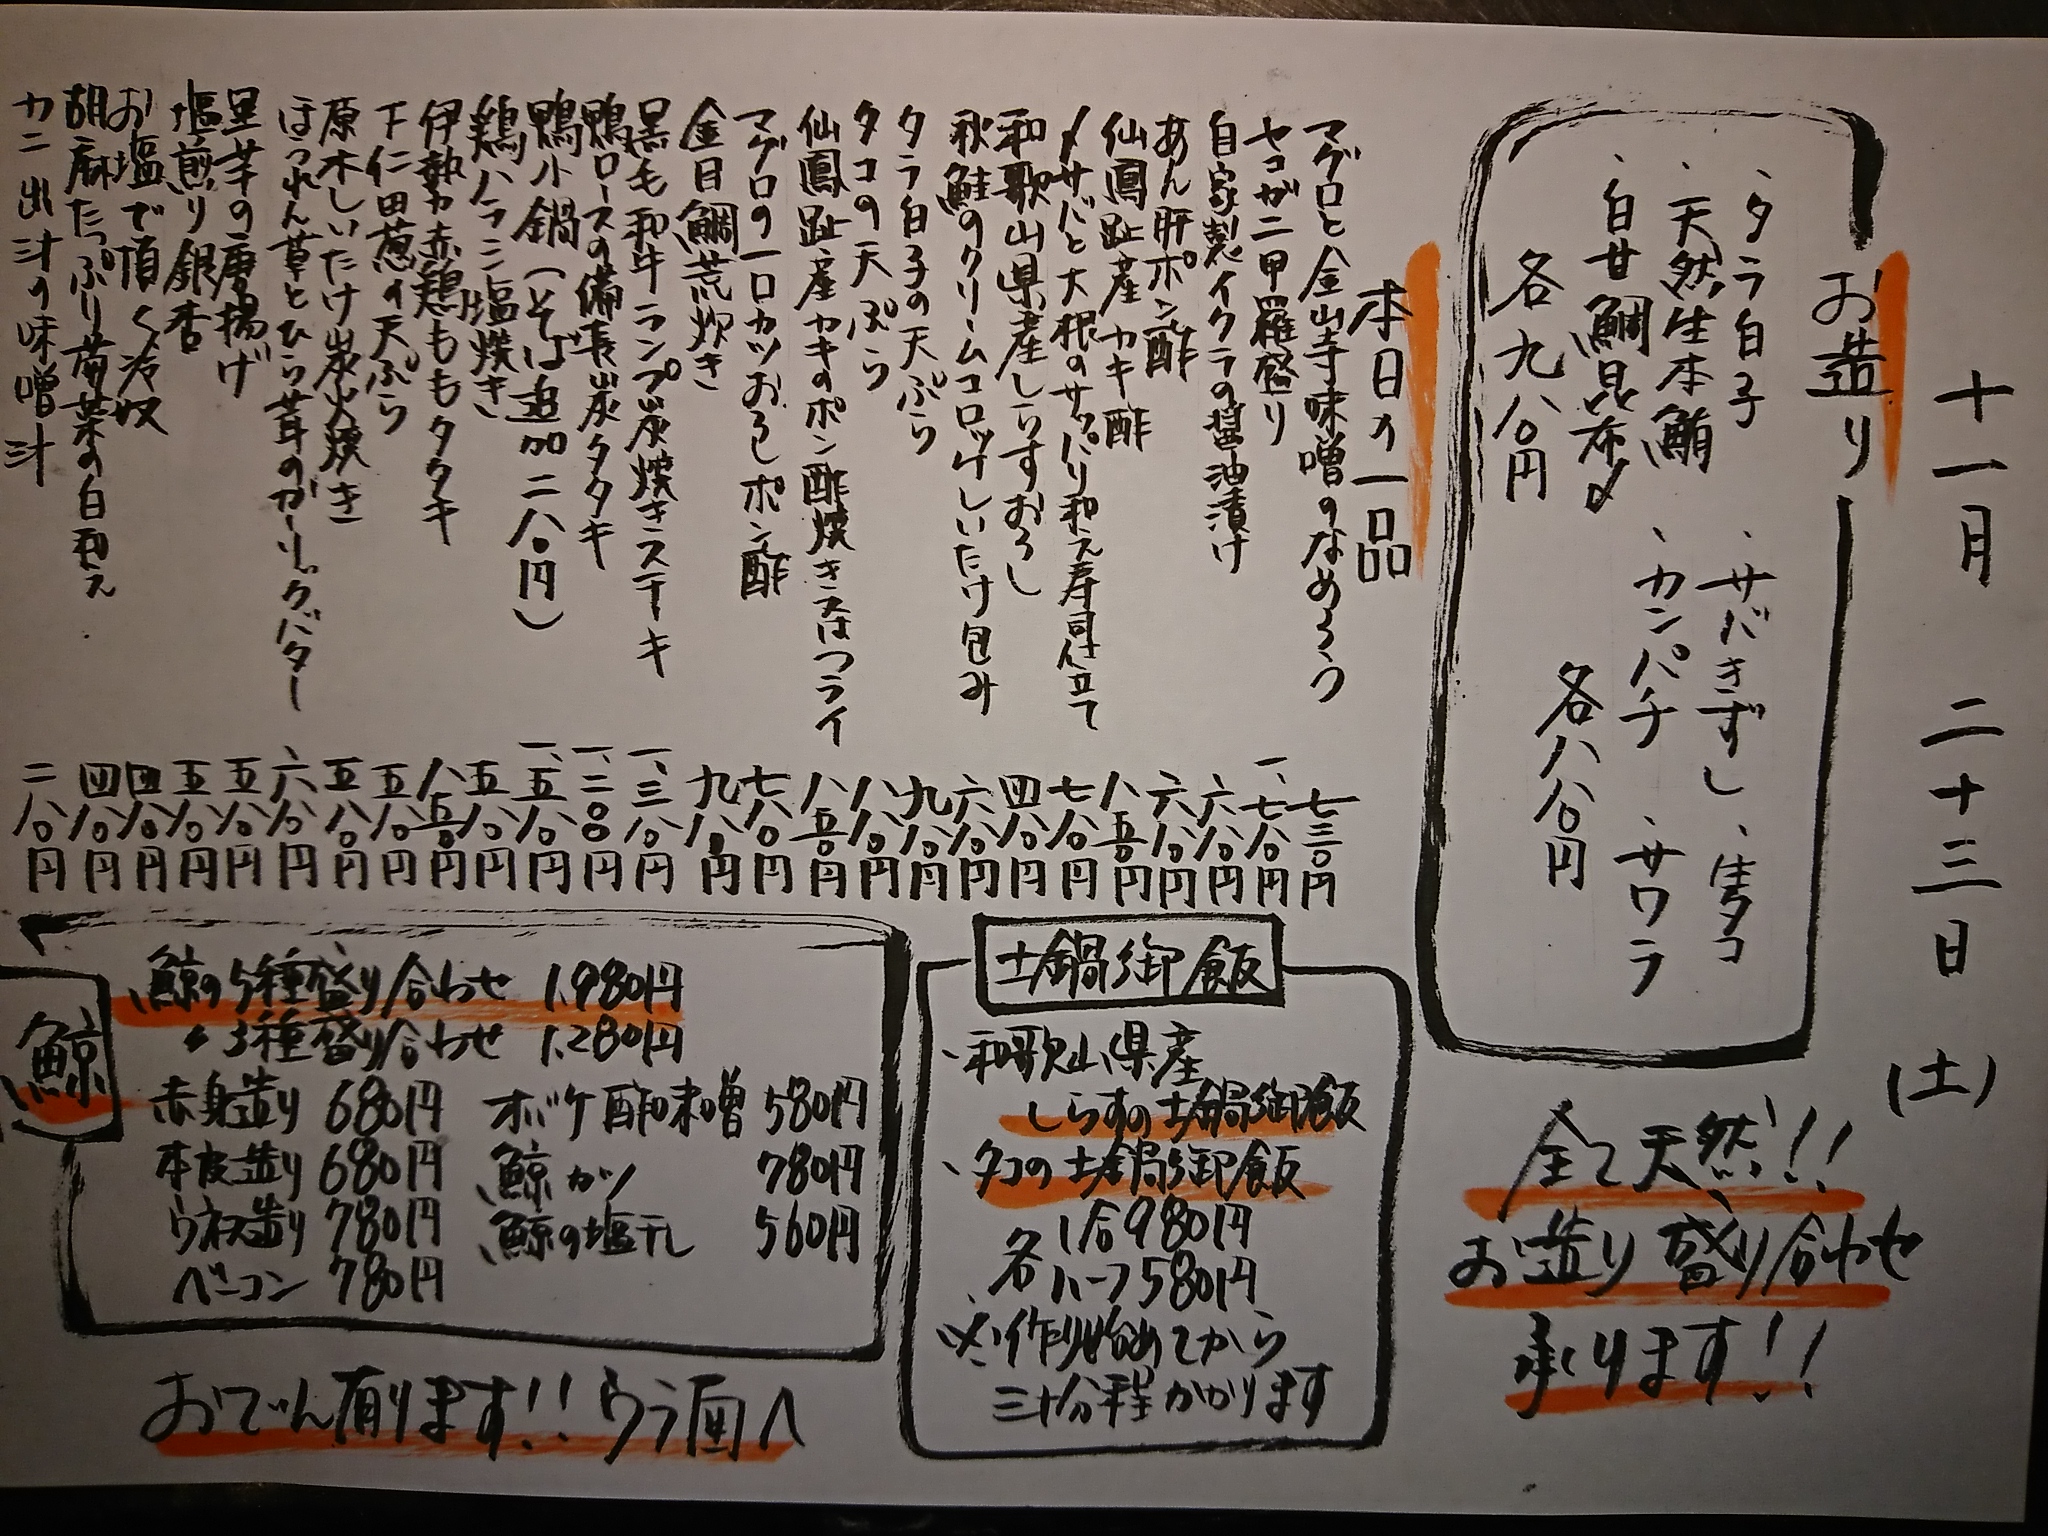 十一月 二十三日 (土)
お造り
、タラ白子
、天然生本鮪
、白甘鯛昆布〆
各九八〇円
、サバきずし 、生タコ
、カンパチ 、サワラ
各八八〇円
全て天然!!
お造り盛り合わせ
承ります!!
本日の一品
マグロと金山寺味噌のなめろう 七三〇円
セコガニ甲羅盛り 一、七八〇円
自家製イクラの醤油漬け 六八〇円
あん肝ポン酢 六八〇円
仙鳳趾産カキ酢 八五〇円
〆サバと大根のサッパリ和え寿司仕立て 七八〇円
和歌山県産しらすおろし 四八〇円
秋鮭のクリームコロッケしいたけ包み 六八〇円
タラ白子の天ぷら 九八〇円
タコの天ぷら 八八〇円
仙鳳趾産カキのポン酢焼き又はフライ 八五〇円
マグロの一口カツおろしポン酢 七八〇円
金目鯛荒炊き 九八〇円
黒毛和牛ランプ炭焼きステーキ 一、三八〇円
鴨ロースの備長炭タタキ 一、二〇〇円
鴨小鍋(そば追加二八〇円) 一、五八〇円
鶏ハラミ塩焼き 五八〇円
伊勢赤鶏ももタタキ 八五〇円
下仁田葱の天ぷら 五八〇円
原木しいたけ炭火焼き 五八〇円
ほうれん草とひら茸のガーリックバター 六八〇円
里芋の唐揚げ 五八〇円
塩煎り銀杏 五八〇円
お塩で頂く冷奴 四八〇円
胡麻たっぷり菊菜の白和え 四八〇円
カニ出汁の味噌汁 二八〇円
土鍋御飯
、和歌山県産
しらすの土鍋御飯
、タコの土鍋御飯
各 1合980円
ハーフ580円
※作り始めてから
三十分程かかります
鯨
鯨の5種盛り合わせ 1,980円
〃3種盛り合わせ 1,280円
赤身造り 680円 オバケ酢味噌 580円
本皮造り 680円 鯨カツ 780円
ウネス造り 780円 鯨の塩干し 560円
ベーコン 780円
おでん有ります!! ウラ面へ